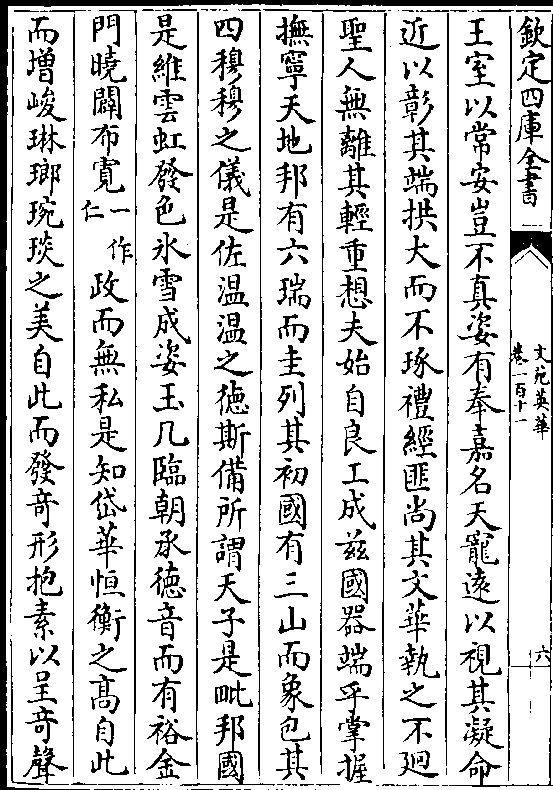 欽定四庫全書
文苑英華
卷一百十一
六
王室以常安豈不真姿有奉嘉名天寵遠以視其凝命
近以彰其端拱大而不琢禮經匪尚其文華執之不廻
聖人無離其輕重想夫始自良工成兹國器端乎掌握
撫寧天地邦有六瑞而圭列其初國有三山而象包其
四穆穆之儀是佐温温之徳斯備所謂天子是毗邦國
是維雲虹發色氷雪成姿玉几臨朝承徳音而有裕金
門曉闢布寛一作仁政而無私是知岱華恒衡之髙自此
而増峻琳瑯琬琰之美自此而發奇形抱素以呈奇聲